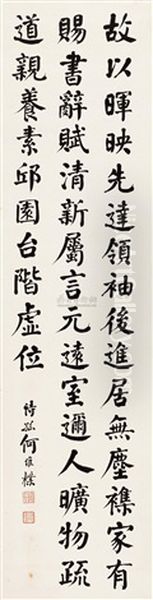 故以暉映先達領袖後進居無塵襍家有
賜書辭賦清新屬言元遠室邇人曠物疏
道親養素邱園台階虛位
詩孫何維樸